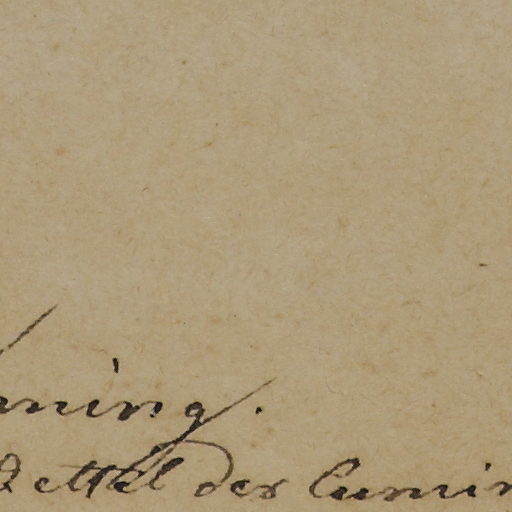 ning.
ettel der Cumin